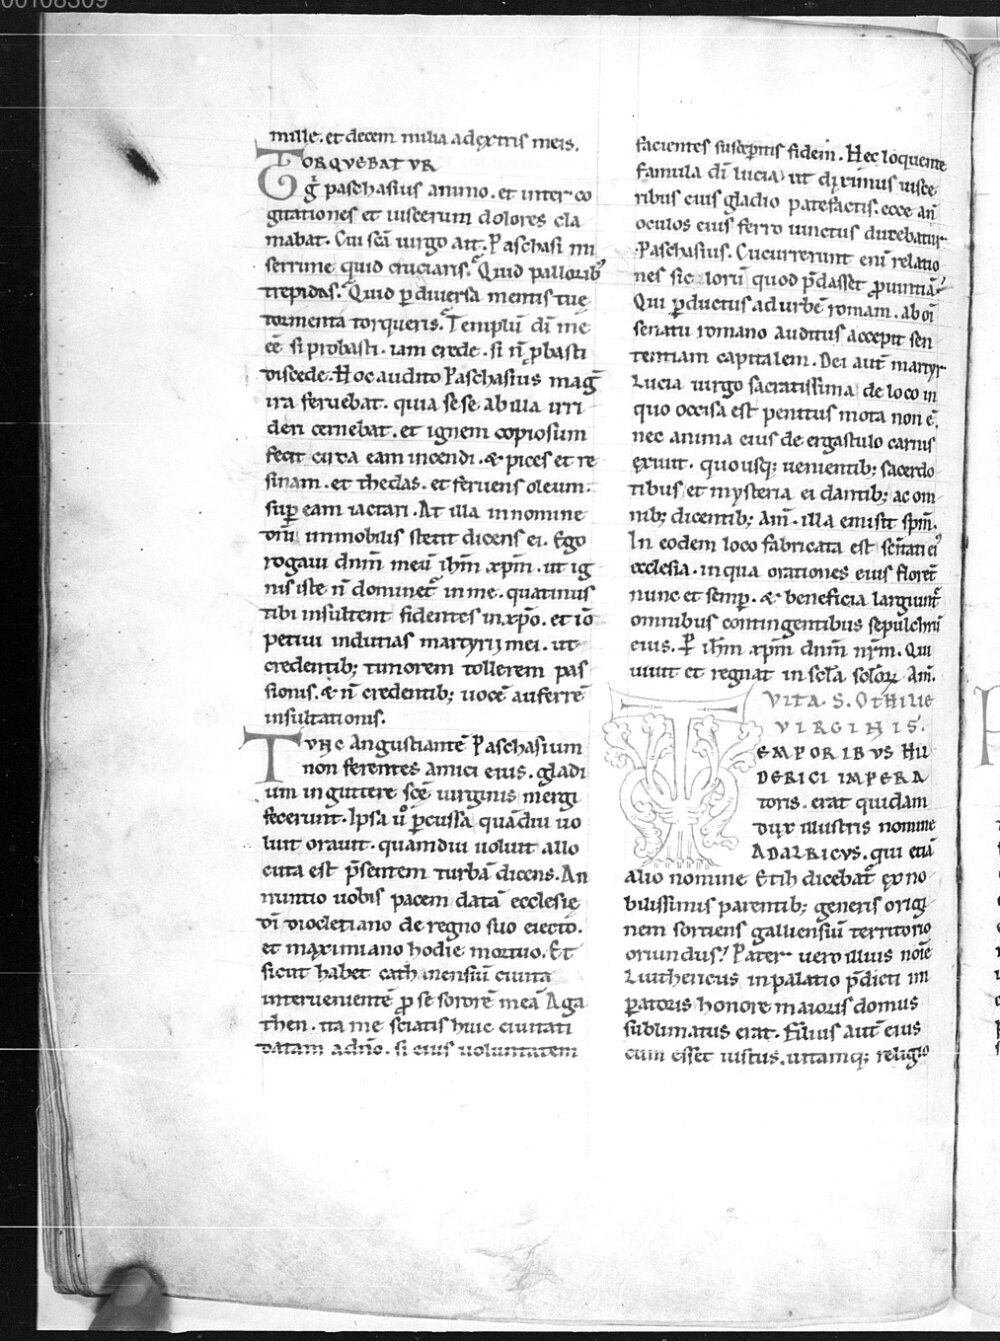 00108309
mille. et decem milia adextris meis.
TORQVEBATVR
g paschasius animo. et inter co
gitationes et uiscerum dolores cla
mabat. Cui scā uirgo ait. Paschasi mi
serrime quid cruciaris. Quid pallorib᷒
trepidas. Quid p diuersa mentis tuę
tormenta torqueris. Templū dī me
eē si probasti. iam crede. si n̄ pbasti
discede. Hoc audito Paschasius mag̅
ira feruebat. quia sese ab illa irri
deri cernebat. et ignem copiosum
fecit circa eam incendi. & pices et re
sinam. et thedas. et feruens oleum.
sup eam iactari. At illa in nomine
dn̄i immobilis stetit dicens ei. Ego
rogaui dnm̄ meū ihm̄ xpm̄. ut ig
nis iste n̄ dominet᷑ in me. quatinus
tibi insultent fidentes in xp̄o. et iō
petiui indutias martyrij mei. ut
credentib; timorem tollerem pas
sionis. & n̄ credentib; uocē auferrē
insultationis.
Tvnc Angustiantē Paschasium
non ferentes amici eius. gladi
um in gutture scē uirginis mergi
fecerunt. Ipsa u᷒o pcussa quādiu uo
luit orauit. quamdiu uoluit allo
cuta est p̄sentem turbā dicens. An
nuntio uobis pacem datā ecclesię
dī diocletiano de regno suo eiecto.
et maximiano hodie mortuo. Et
sicut habet cathinensiū ciuita
interueniente p se sororē meā Aga
then. ita me sciatis huic ciuitati
datam a dn̄o. si eius uoluntatem
facientes susceperitis fidem. Hęc loquente
famula dī lucia. ut diximus uisce
ribus eius gladio patefactis. ecce an̄
oculos eius ferro uinctus ducebatur
Paschasius. Cucurrerunt enī relatio
nes siclorū quod p̄dasset puintiā.
Qui pductus ad urbē romam. ab oī
senatu romano auditus accepit sen
tentiam capitalem. Dei aut̄ martyr
Lucia uirgo sacratissima de loco in
quo occisa est penitus mota non ē.
nec anima eius de ergastulo carnis
exiuit. quousq; uenientib; sacerdo
tibus et mysteria ei dantib; ac om
nib; dicentib; Am̄. illa emisit spm̄.
In eodem loco fabricata est scītati ei᷒
ecclesia. in qua orationes eius floreēt
nunc et semp. & beneficia largiunt᷑
omnibus contingentibus sepulchrū
eius. P ihm̄ xpm̄ dnm̄ nrm̄. Qui
uiuit et regnat in scla sclorꝝ Am̄.
VITA. S. OTHILIE
VIRGINIS.
TEMPORIBVS HIL
DERICI IMPERA
toris. erat quidam
dux illustris nomine
ADALRICVS. qui etiā
alio nomine Etih dicebat᷑ ex no
bilissimis parentib; generis origi
nem sortiens galliensiū territorio
oriundus. Pater uero illius noīe
Liuthericus in palatio p̄dicti im
peratoris honore maioris domus
sublimatus erat. Filius aut̄ eius
cum esset uisus. uitamq; religio